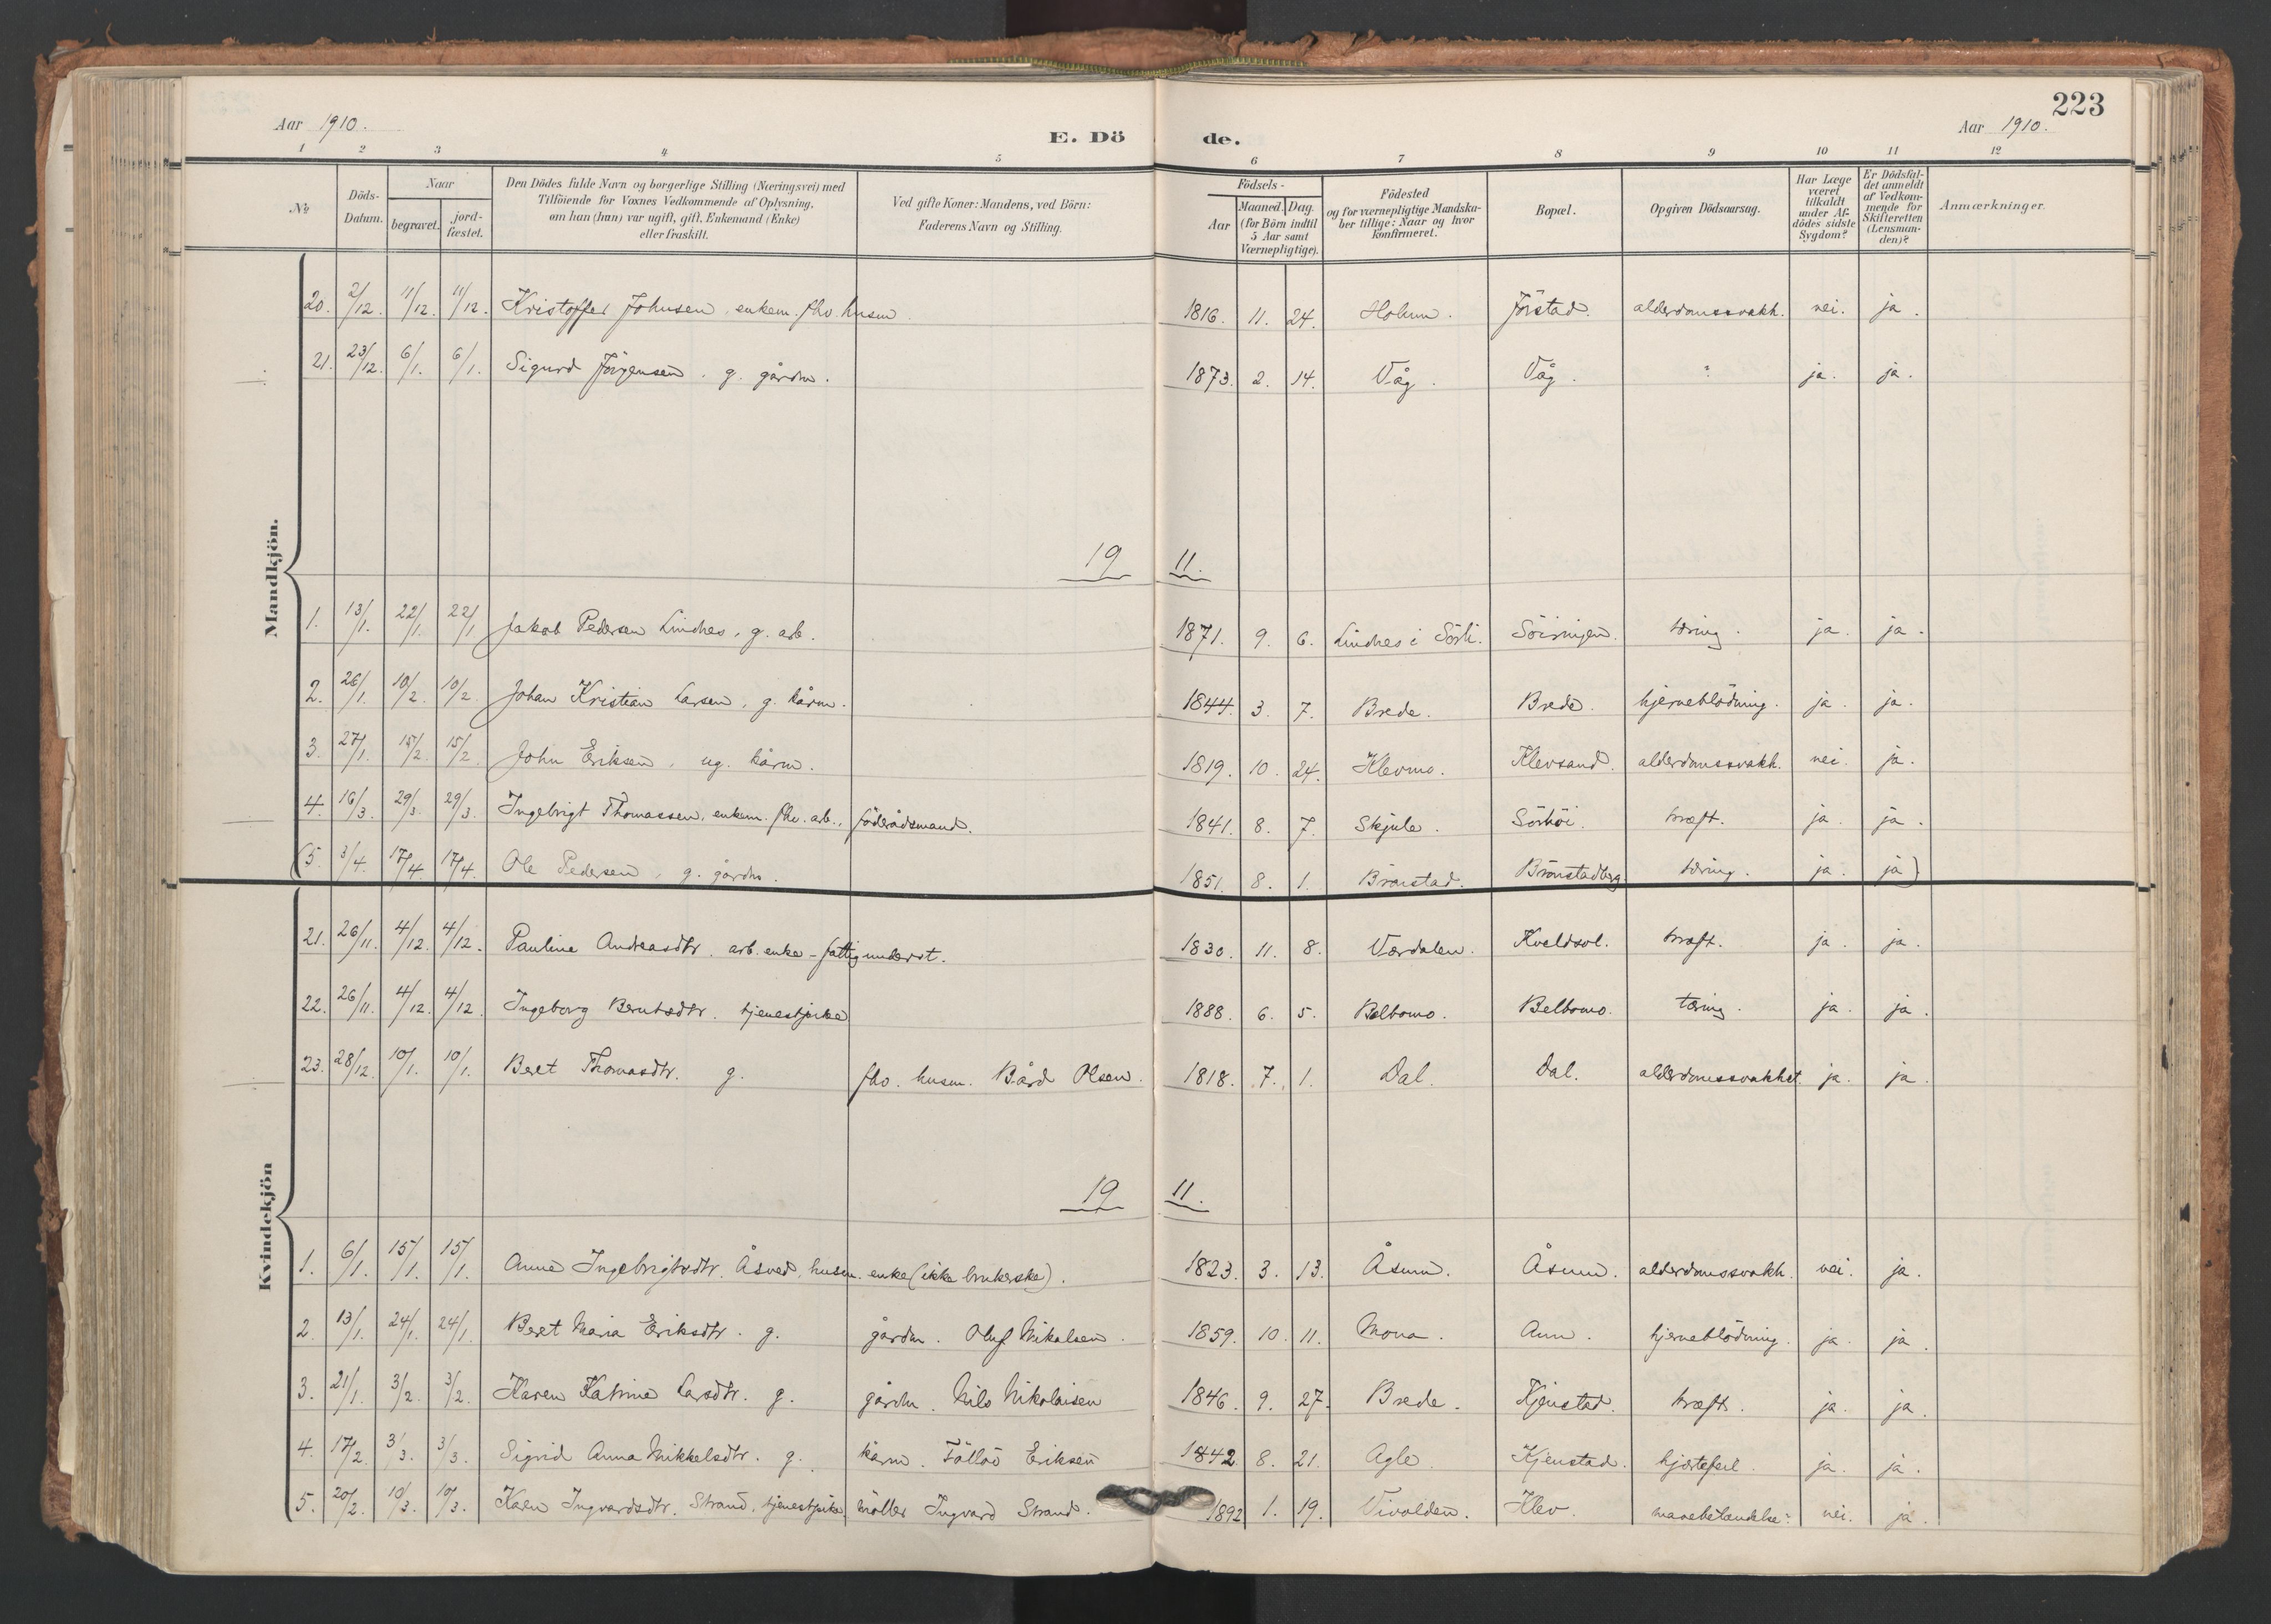 223
Aar 1910. E. Dö de. Aar 1910.
1 2 3 4 5 6 7 8 9 10 11 12
No. Döds-Datum. Naar begravet. jord-fæstet. Den Dödes fulde Navn og borgerlige Stilling (Næringsvei) med Tilföiende for Voxnes Vedkommende af Oplysning, om han (hun) var ugift, gift, Enkemand (Enke) eller fraskilt. Ved gifte Koner: Mandens, ved Börn: Faderens Navn og Stilling. Födsels- Aar Maaned. Dag. (for Börn indtil 5 Aar samt Værnepligtige). Födested og for værnepligtige Mandskaber tillige: Naar og hvor konfirmeret. Bopæl. Opgiven Dödsaarsag. Har Læge været tilkaldt under Afdödes sidste Sygdom? Er Dödsfaldet anmeldt af Vedkommende for Skifteretten (Lensmanden)? Anmærkninger.
Mandkjön.
20. 2/12. 11/12. 11/12. Kristoffer Johnsen, enkem. fhv. husm 1816. 11. 24. Holum. Jörstad. alderdomssvakh. nei. ja.
21. 23/12. 6/1. 6/1. Sigurd Jörgensen, g. gårdm. 1873. 2. 14. Våg. Våg. " ja. ja.
19 11.
1. 13/1. 22/1. 22/1 Jakob Pedersen Lindnes, g. arb. 1871. 9. 6. Lindnes i Sörli. tæring. ja. ja.
2. 26/1. 10/2. 10/2. Johan Kristian Larsen, g. kårm. 1844. 3. 7. Brede. Brede. hjerneblödning. ja. ja.
3. 27/1. 15/2. 15/2. John Eriksen, ug. kårm. 1819. 10. 24. Klevmo. Klevsand. alderdomssvakh. nei. ja.
4. 16/3. 29/3. 29/3. Ingebrigt Thomassen, enkem. fhv. arb., föderådsmand. 1841. 8. 7. Skjule. Sörhöi. kræft. ja. ja.
(5. 3/4. 17/4. 17/4. Ole Pedersen, g. gårdm. 1851. 8. 1. Brönstad. Brönstadberg. tæring. ja. ja)
Kvindekjön
21. 26/11. 4/12. 4/12. Pauline Andreasdtr. arb. enke - fattigunderst. 1830. 11. 8. Værdalen. Kveldsol. kræft. ja. ja.
22. 26/11. 4/12. 4/12. Ingeborg Berntsdtr. tjenestpike 1888. 6. 5. Belbomo. Belbomo. tæring. ja. ja.
23. 28/12. 10/1. 10/1. Beret Thomasdtr. g. fhv. husm. Bård Olsen. 1818. 7. 1. Dal. Dal. alderdomssvakhet. ja. ja.
19 11.
1. 6/1. 15/1. 15/1. Anne Ingebrigtsdtr. Åsved, husm. enke (ikke brukerske). 1823. 3. 13. Åsum. Åsum. alderdomssvakh. nei. ja.
2. 13/1. 24/1. 24/1. Beret Maria Eriksdtr. g. gårdm. Oluf Mikalsen. 1859. 10. 11. Mona. Aun. hjerneblödning. ja. ja.
3. 21/1. 3/2. 3/2. Karen Katrine Larsdtr. g. gårdm. Nils Nikolaisen 1846. 9. 27. Brede. Kjenstad. kræft. ja. ja.
4. 17/2. 3/3. 3/3. Sigrid Anna Mikkelsdtr. g. kårm. Tållåv Eriksen 1842 8. 21. Agle. Kjenstad. hjertefeil. ja. ja.
5. 20/2. 10/3. 10/3. Karen Ingvardsdtr. Strand, tjenestpike möller Ingvard Strand. 1892 1. 19. Vivolden. Klev. mavebetændelse. nei. ja.